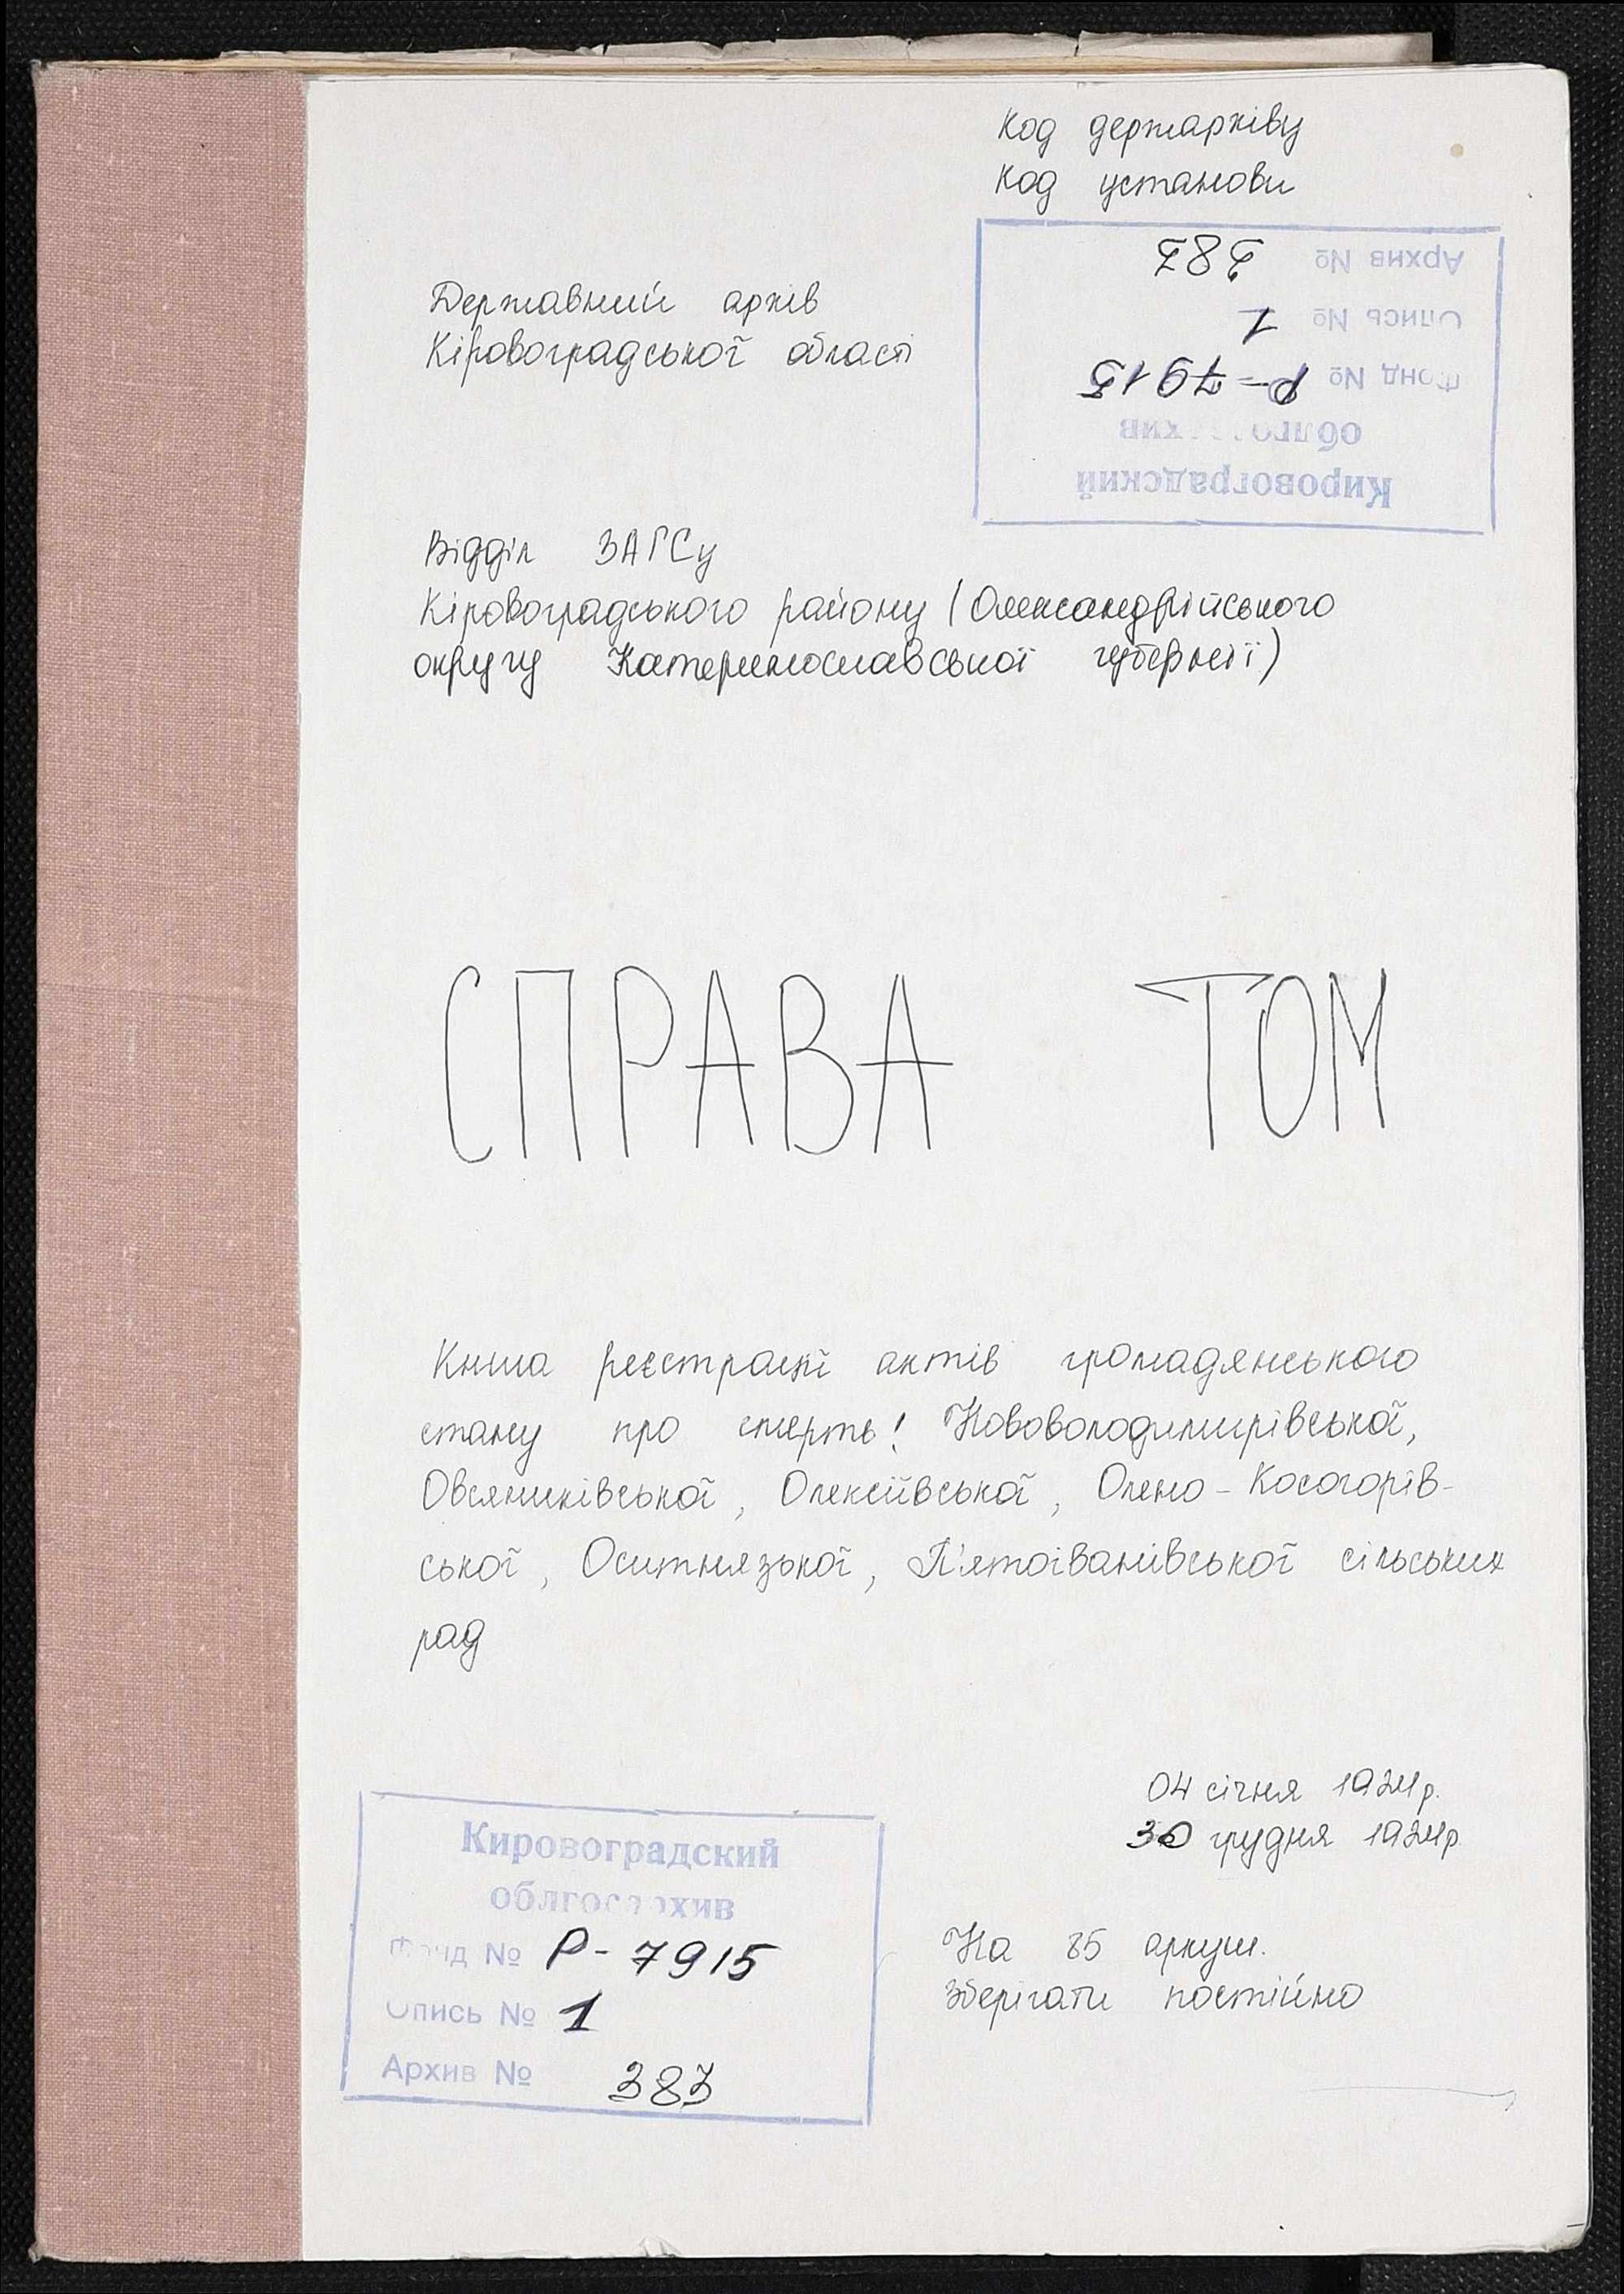 Код держархіву
Код установи
Кировоградский
облгосархив
Фонд № Р-7915
Опись № 1
Архив № 383
Державний архів
Кіровоградської області
Відділ ЗАГСу
Кіровоградського району (Олександрійського
округу Катеринославської губернії)
СПРАВА ТОМ
Книга реєстрації актів громадянського
стану про смерть! Нововолодимирівської,
Овсяниківської, Олексіївської, Олено-Косогорів-
ської, Оситнязької, П'ятоіванівської сільських
рад
04 січня 1924р.
30 грудня 1924р.
На 85 аркуш.
Зберігати постійно
Кировоградский
облгосархив
Фонд № Р-7915
Опись № 1
Архив № 383